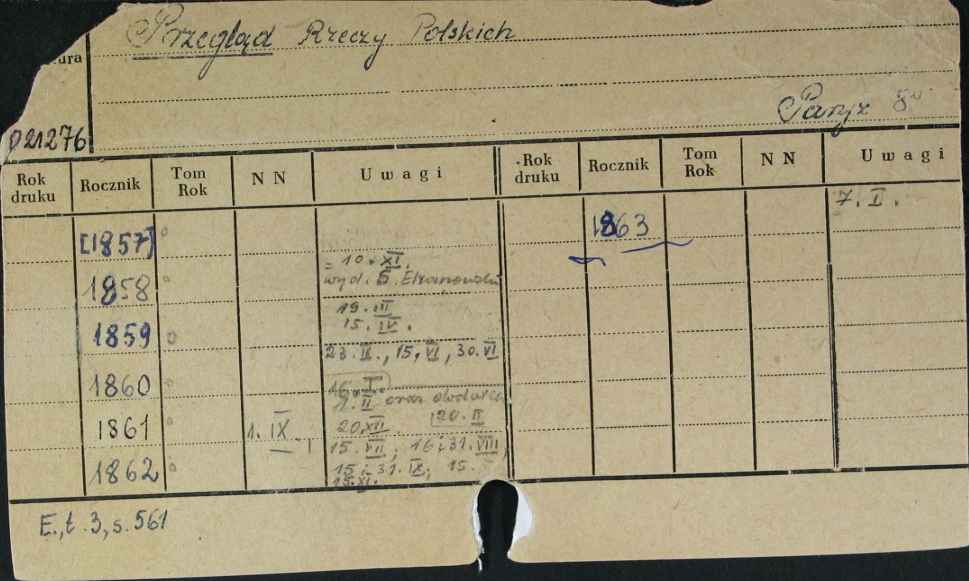 Przegląd Rzeczy Polskich
ura
Paryż 8°
021276
Rok druku Rocznik Tom Rok N N Uwagi Rok druku Rocznik Tom Rok N N Uwagi
7. I.
[1857] 1863
= 10. XI.
1858 wyd. S. Elżanowski
19. III
1859 15. IV.
23. IX., 15, VI, 30. VI
1860 16. I.
1. II oraz okładka
1861 1. IX. 20. XII. 20. II
15. VII; 16 i 31. VIII
1862 15 i 31. IX; 15.
15. XI.
E., t. 3, s. 561